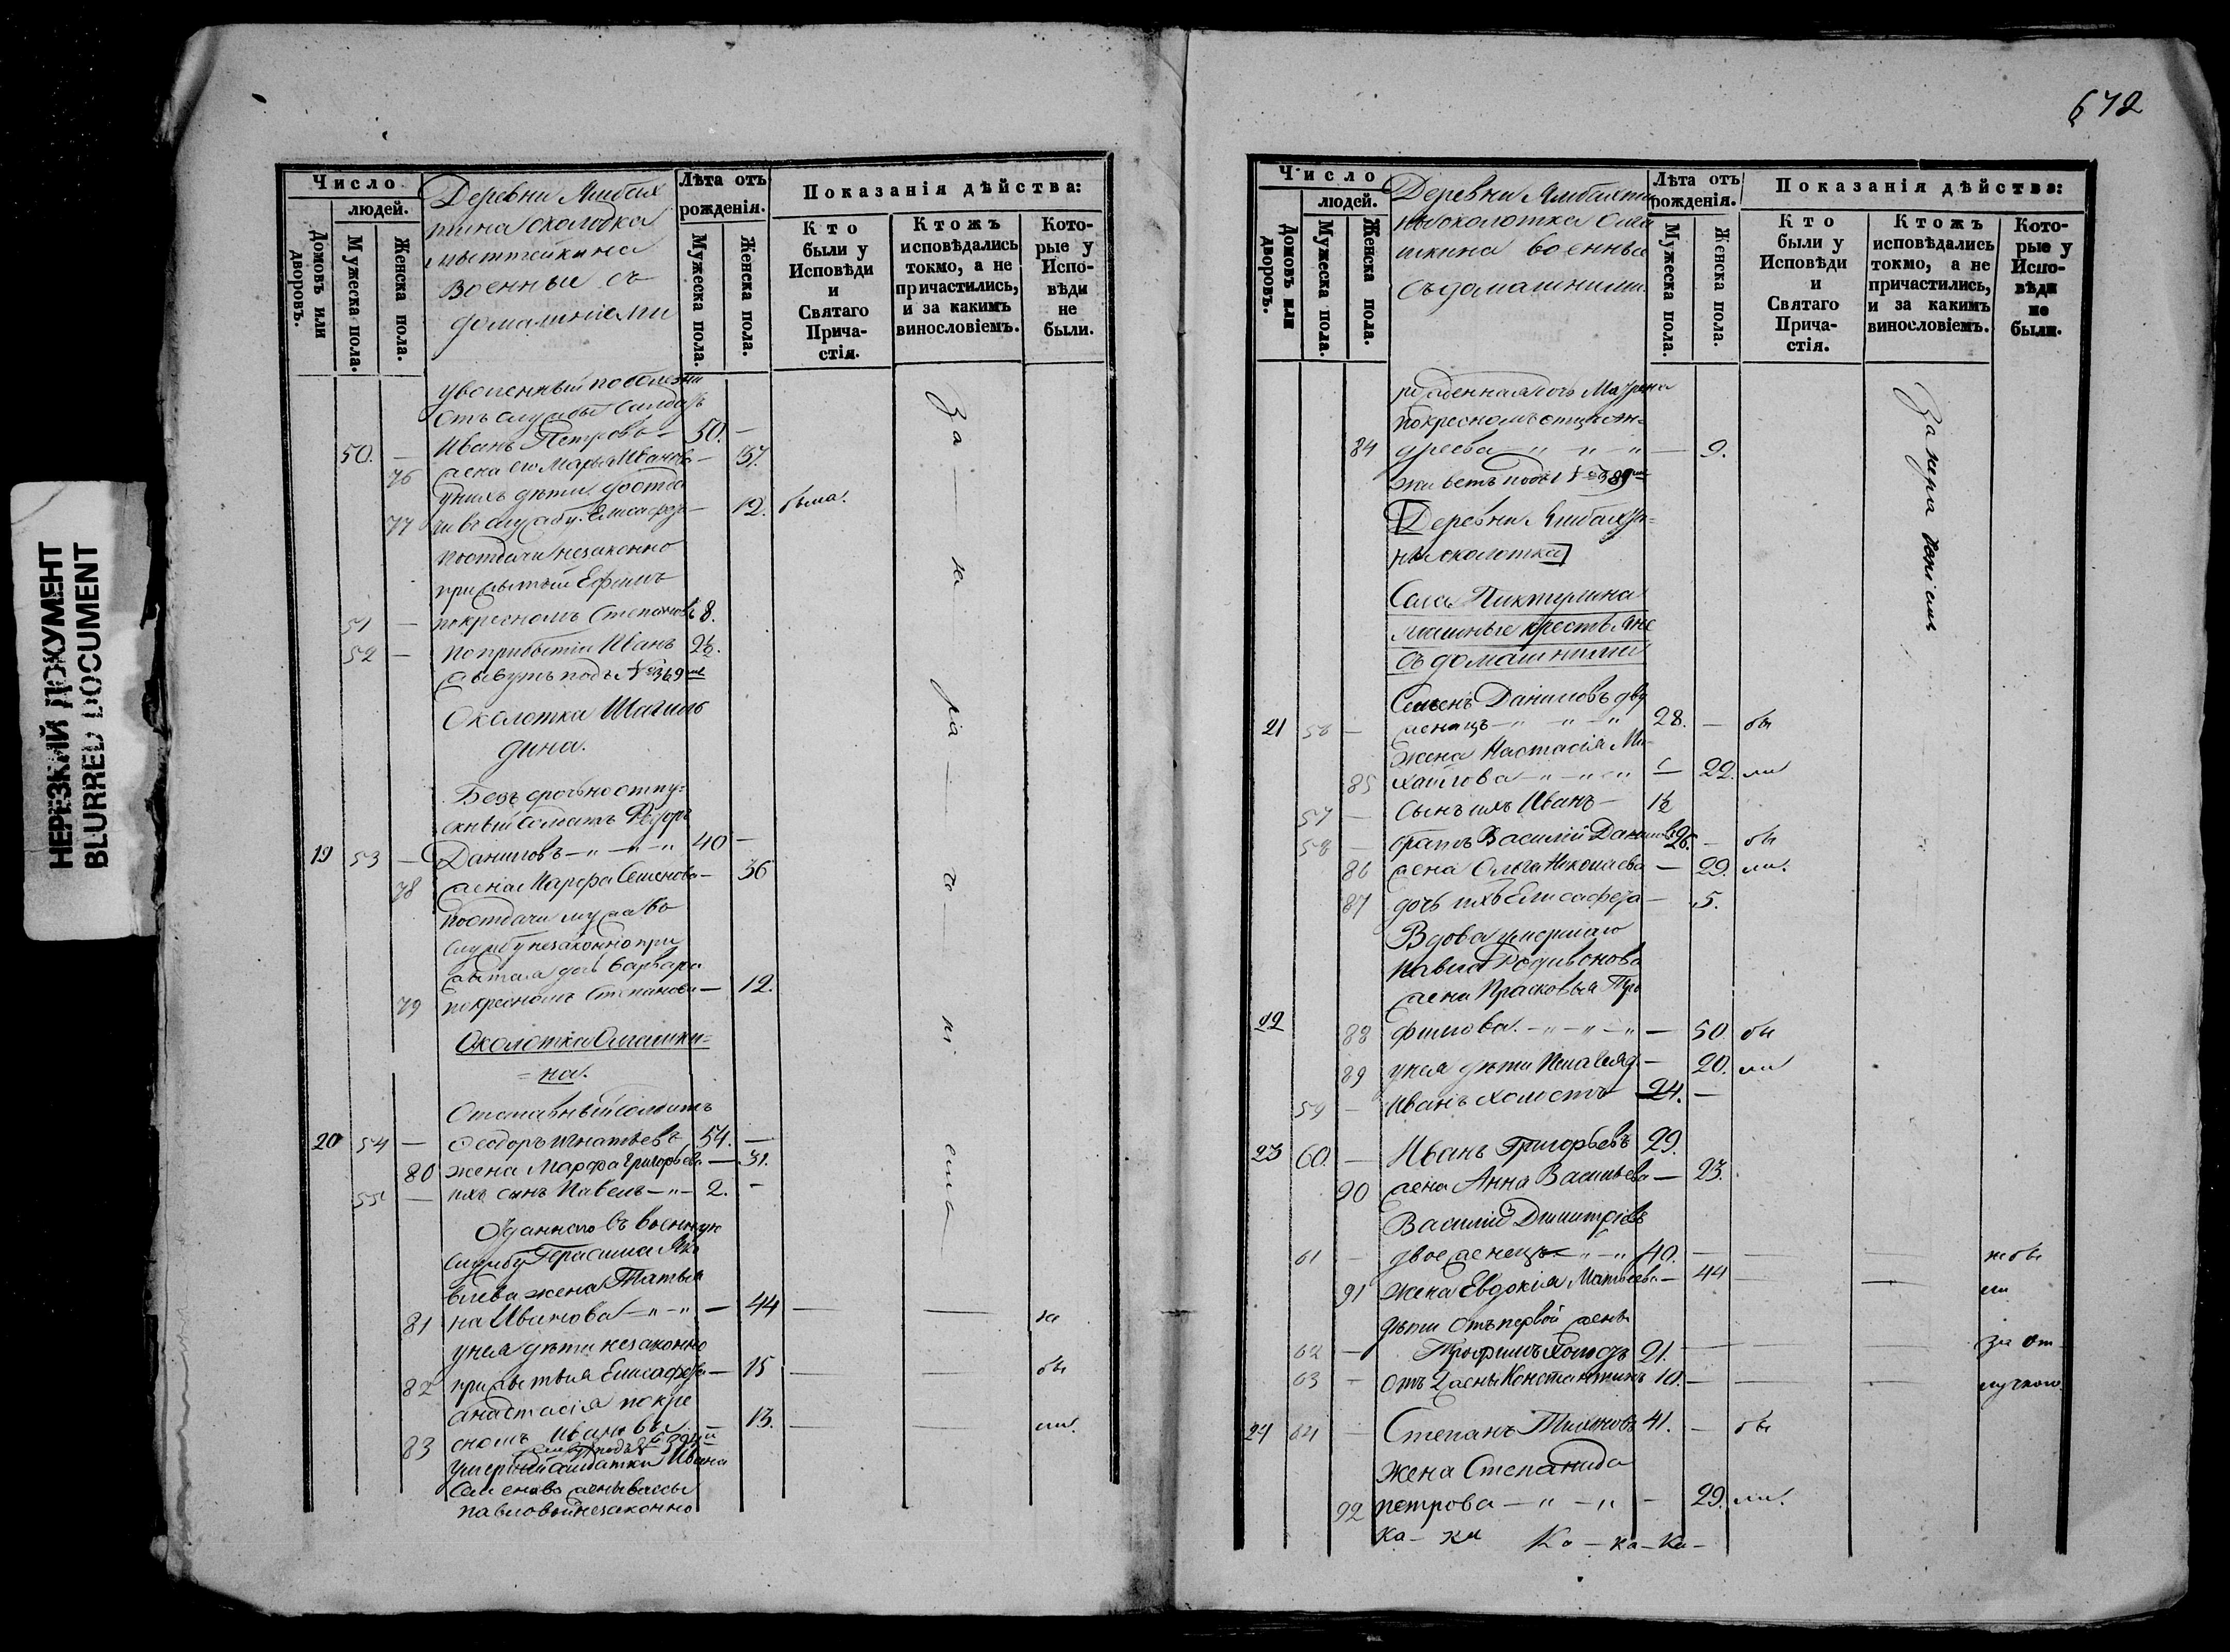 НЕРЕЗКИЙ ДОКУМЕНТ
BLURRED DOCUMENT
Число
людей.
Домовъ или дворовъ.
Мужеска пола.
Женска пола.
Деревни
околодка
военные съ
домашніями
Лѣта отъ рожденія.
Мужеска пола.
Женска пола.
Показанія дѣйства:
Кто были у Исповѣди и Святаго Прича-стія.
Ктожъ исповѣдались токмо, а не причастились, и за какимъ винословіемъ.
Кото-рые у Испо-вѣди не были.
уволенный по болезни
отъ службы солдатъ
50. — Иванъ Петровъ — 50. —
76 жена его Марья Иванова — 37.
у нихъ дѣти до отда
77 чи въ службу Елисафеѳ — 12. была.
по отдачи незаконно
прижитый Ефимъ
51 — по кресномъ Степановъ 8.
52 — по прибытіи Иванъ 2½.
живутъ подъ № 369
Околотка
дина.
Безъ срочно отпу-
скный солдатъ Ѳедоръ
19 53 — Даниловъ — 40 —
78 жена Марфа Семенова — 36
по отдачи мужа въ
службу незаконно при
житая дочь Варвара
79 по кресномъ Степанова — 12.
Околотка
на.
Отставный солдатъ
20 54 — Ѳеодоръ Игнатьевъ 54. —
80 жена Марфа Григорьева — 31.
55 — ихъ сынъ Павелъ — 2. —
въ военную
службу Герасима Яко
влева жена Татья
81 на Иванова — 44 — — не
у нея дѣти незаконно
82 прижитыя Елисафеѳа — 15 — — бы
Анастасія по кре
83 сномъ Ивановы — 13. — — ли.
умершей солдатки Ивана
Семенова жены
Павловой незаконно
За не ра че ні емъ
672
Число
людей.
Домовъ или дворовъ.
Мужеска пола.
Женска пола.
Деревни
околотка
шкина военные
съ домашними.
Лѣта отъ рожденія.
Мужеска пола.
Женска пола.
Показанія дѣйства:
Кто были у Исповѣди и Святаго Прича-стія.
Ктожъ исповѣдались токмо, а не причастились, и за какимъ винословіемъ.
Кото-рые у Испо-вѣди не были.
рожденная дочь Матрена
по кресномъ отцѣ Ан-
84 дреева — 9.
живетъ подъ № 389
Деревни
околотка
Села Пиктулина
крестьяне
съ домашними
Семенъ Даниловъ дво
21 56 — женецъ — 28. — бы
жена Настасія Ми-
85 хайлова — 22. ли
57 — сынъ ихъ Иванъ — 1½
58 — братъ Василій Даниловъ 26. — бы
86 жена Ольга Николаева — 29. ли.
87 дочь ихъ Елисафеѳа — 5.
Вдова умершаго
Павла Родивонова
жена Прасковья Тро
22 88 фимова — 50. бы
89 у нея дѣти — 20. ли
59 — Иванъ холостъ 24. —
23 60. — Иванъ Григорьевъ 29.
90 жена Анна Васильева — 23.
Василій Димитріевъ
61 — двоеженецъ — 40. — — — не бы
91 жена Евдокія Матвеева — 44 — — ли
дѣти отъ первой жены
62 — Трофимъ холостъ 21. — — — за от
63 — отъ 2 жены Константинъ 10. — — — лучкою.
24 64 — Степанъ Тихоновъ 41. — бы
жена Степанида
92 Петрова — 29. ли.
Ка — ка — Ка — ка — Ка —
За нераченіемъ